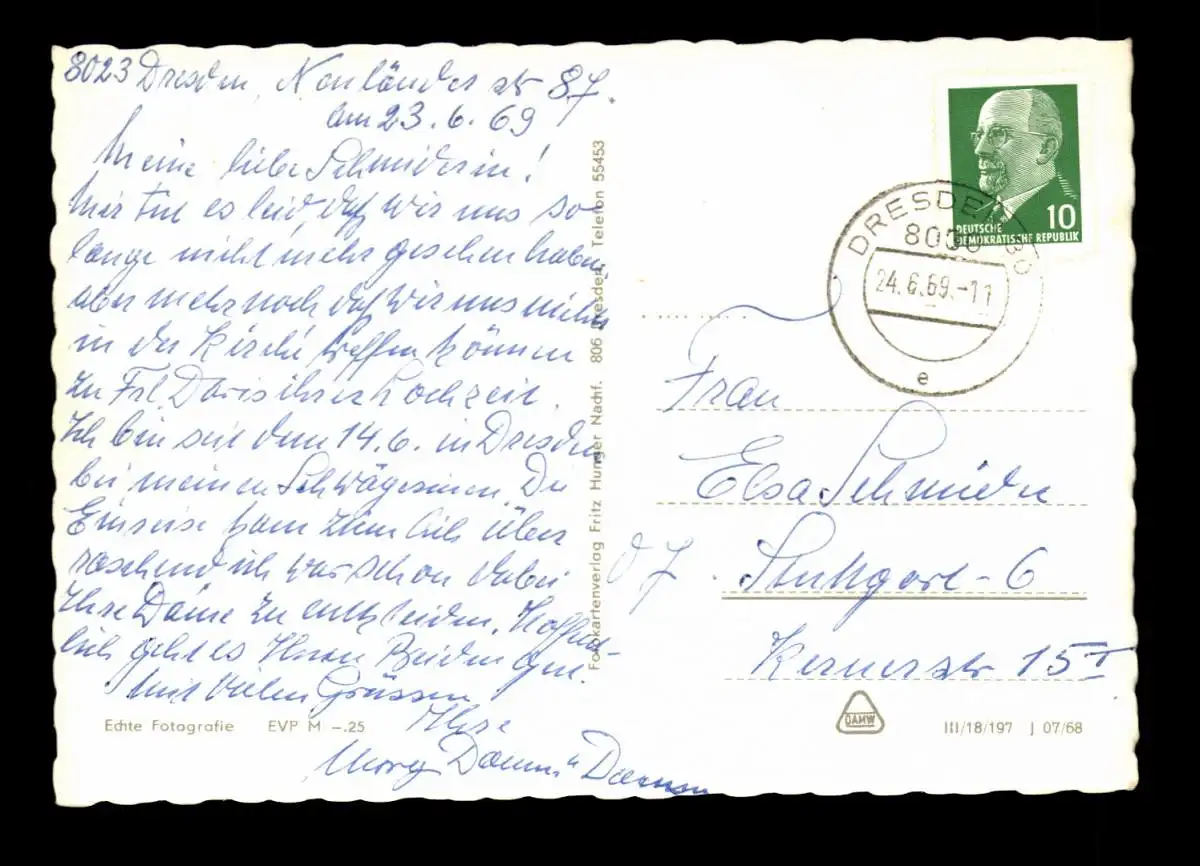 8023 Dresden, Neuländer str 87.
am 23.6.69
Meine liebe Schmiderin!
Mir tut es leid, daß wir uns so
lange nicht mehr gesehen haben,
aber mehr noch daß wir uns nicht
in der Kirche treffen können
zu Frl. Doris ihrer Hochzeit.
Ich bin seit dem 14.6. in Dresden
bei meinen Schwägerinnen. Die
Einreise kam ziemlich über
raschend, ich war schon dabei
Ihre Dame zu
Hoffent-
lich geht es Ihnen Beiden gut.
Mit vielen Grüssen
Ihre
Echte Fotografie EVP M -.25
Fotokartenverlag Fritz Hunger Nachf. 806 Dresden, Telefon 55453
10
DEUTSCHE
DEMOKRATISCHE REPUBLIK
DRESDEN 30
8030
24.6.69.-11
e
Frau
Elsa Schmide
Stuttgart-6
Kernerstr 15 I
DAMW
III/18/197 J 07/68